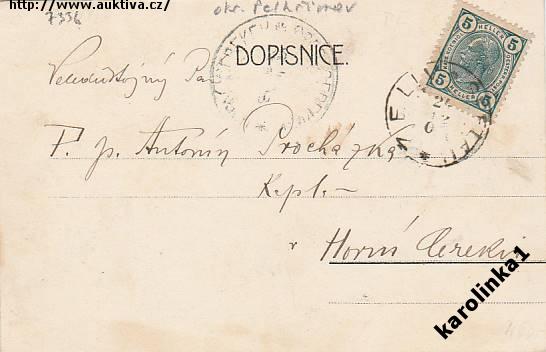 http://www.auktiva.cz/
7336
okr. Pelhřimov
DOPISNICE.
5 HELLER 5
5 HELLER 5
Velectihodný Pán
P. p. Antonín Procházka
Kaplan
v Horní Cerekvi
karolinka1